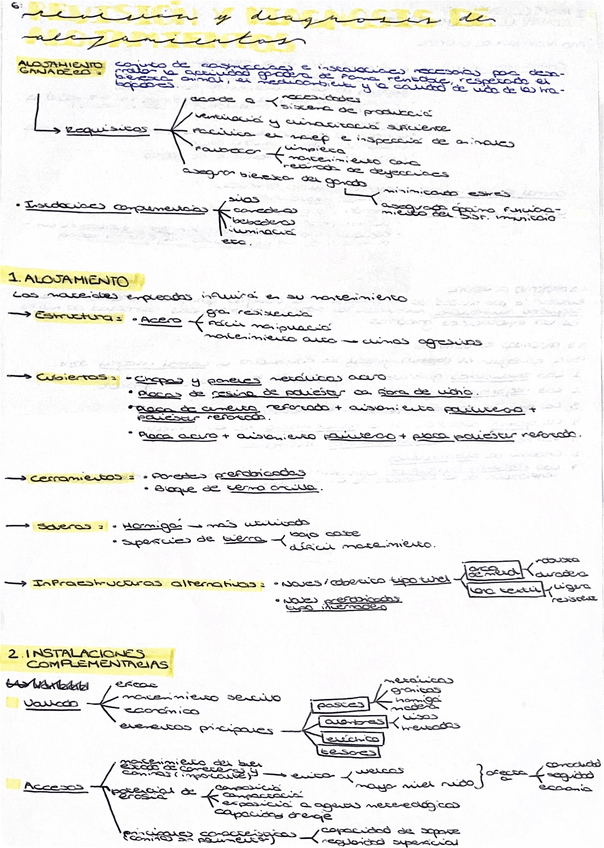 6.
revisión y diagnosis de
alojamientos
ALOJAMIENTO GANADERO: conjunto de construcciones e instalaciones necesarias para desa-
rrollar la actividad ganadera de forma rentable, respetando el
bienestar animal, el medioambiente y la calidad de vida de los tra-
bajadores.
→ Requisitos
acorde a
necesidades
sistema de producció
ventilación y climatizació suficiente
Facilita el manejo e inspección de animales
Favorecer
limpieza
mantenimiento
retirada de deyecciones
asegurar bienestar del ganado
minimizando estrés
asegurando óptimo funciona-
miento del sist. inmunitario
• Instalaciones complementarias
silos
comederos
bebederos
iluminació
etc.
1. ALOJAMIENTO
Los materiales empleados influirá en su mantenimiento
→ Estructura: • Acero
gra resistencia
Fácil manipulació
mantenimiento alto → climas agresivos
→ Cubiertas: • Chapas y paneles metálicos acero
• Placas de resina de poliéster con fibra de vidrio.
• Placa de cemento reforzado + aislamiento poliuretano +
poliéster reforzado.
• Placa acero + aislamiento poliuretano + placa poliéster reforzado.
→ Cerramientos: • Paredes prefabricadas
• Bloque de termo arcilla.
→ Soleras: • Hormigó → más utilizado
• Superficies de tierra
bajo coste
difícil mantenimiento.
→ Infraestructuras alternativas: • Naves/cobertizo tipo túnel
arco de metal
robusta
duradera
lona textil
ligera
resistente
• Naves prefabricadas
tipo invernadero
2. INSTALACIONES
COMPLEMENTARIAS
Vallado
eficaz
mantenimiento sencillo
económico
elementos principales
postes
metálicos
granitos
hormigó
madera
alambres
lisos
trenzados
eléctrico
tensores
Accesos
mantenimiento del buen
estado de carreteras y
caminos (importante)
evita
vuelcos
mayor nivel ruido
afecta a
comodidad
seguridad
economía
potencial de
erosión
composición
compactació
exposición a agentes meteorológicos
capacidad drenaje
principales características
(caminos sin pavimento)
capacidad de soporte
regularidad superficial